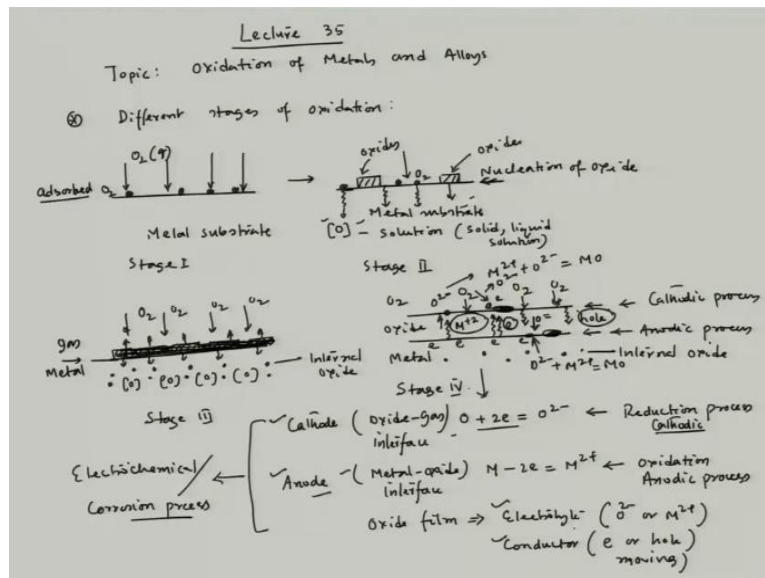 Lecture 35
Topic: Oxidation of Metals and Alloys
⊗ Different stages of oxidation:
O2(g)
adsorbed O2
Metal substrate
Stage I
oxides O2 oxides
Nucleation of oxide
Metal substrate
[O] - solution (solid, liquid solution)
Stage II
O2 O2 O2 O2
gas
Metal
[O] [O] [O] [O]
Internal oxide
Stage III
M2+ + O2- = MO
O2 O2- O2 O2- O2 O2
Cathodic process
oxide M+2 e O= hole
Anodic process
e e e e
Metal
Internal oxide
O2- + M2+ = MO
Stage IV
Cathode (oxide-gas) interface O + 2e = O2- ← Reduction process
Cathodic
Electrochemical
Corrosion process
Anode - (Metal-oxide) interface M - 2e = M2+ ← oxidation
Anodic process
Oxide film ⇒ Electrolyte (O2- or M2+)
Conductor (e or hole moving)